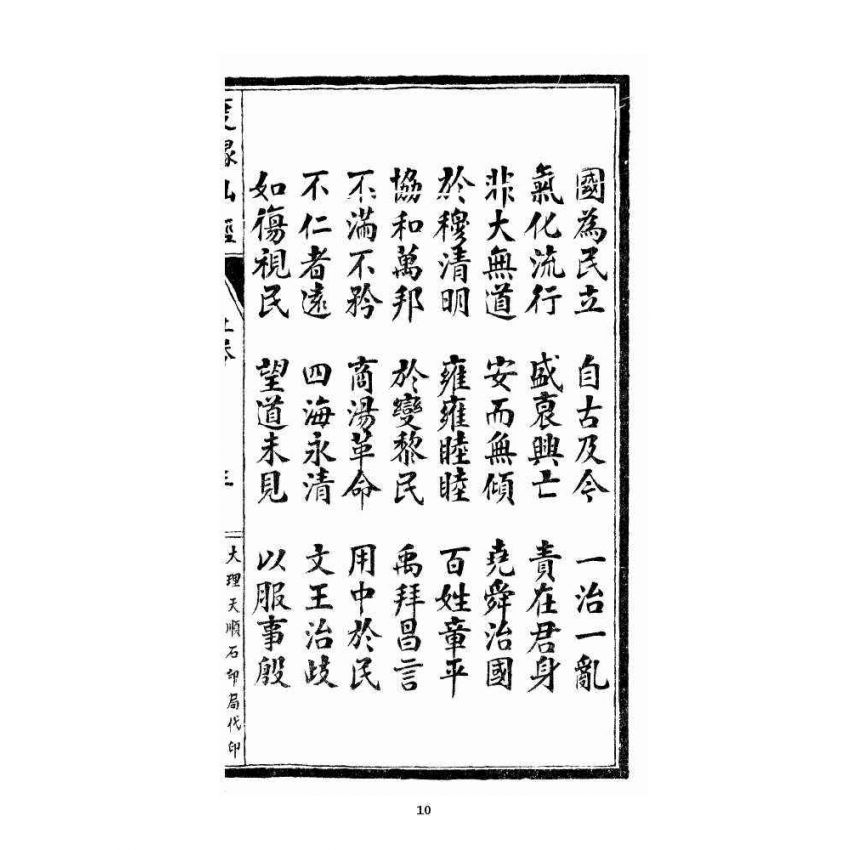 國為民立 自古及今 一治一亂
氣化流行 盛衰興亡 責在君身
非大無道 安而無傾 堯舜治國
於穆清明 雍雍睦睦 百姓章平
協和萬邦 於變黎民 禹拜昌言
不滿不矜 商湯革命 用中於民
不仁者遠 四海永清 文王治歧
如傷視民 望道未見 以服事殷
緣仙經 上卷 三 大理天順石印局代印
10